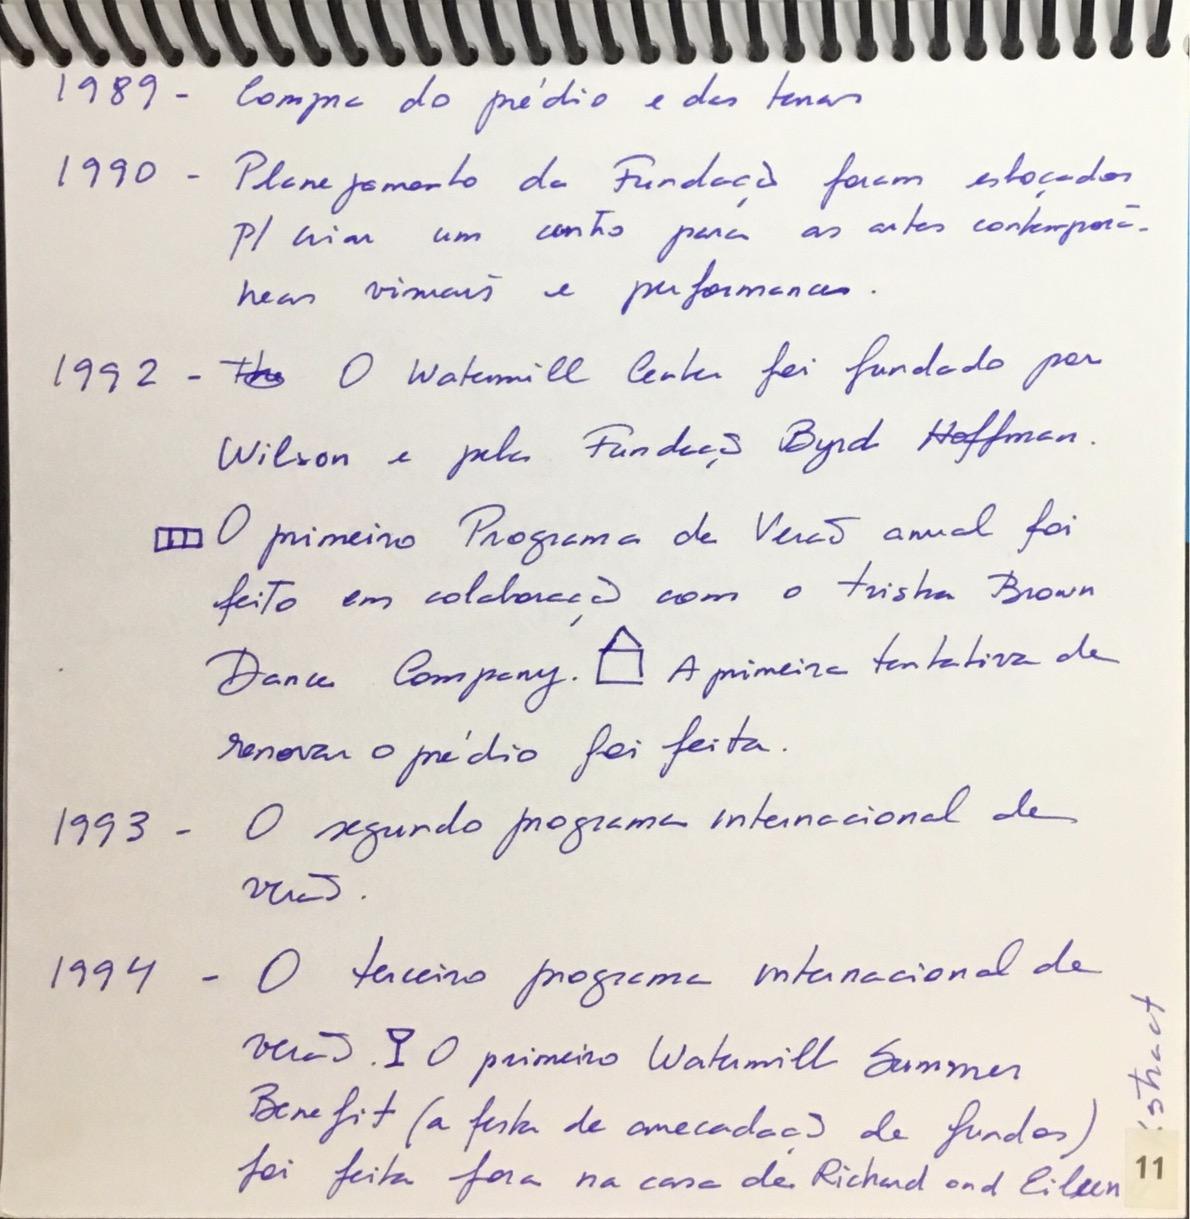 1989 - Compra do prédio e das terras
1990 - Planejamento da Fundação foram esboçados
p/ criar um centro para as artes contemporâ-
neas visuais e performances.
1992 - The O Watermill Center foi fundado por
Wilson e pela Fundação Byrd Hoffman.
O primeiro Programa de Verão anual foi
feito em colaboração com o Trisha Brown
Dance Company. A primeira tentativa de
renovar o prédio foi feita.
1993 - O segundo programa internacional de
verão.
1994 - O terceiro programa internacional de
verão. O primeiro Watermill Summer
Benefit (a festa de arrecadação de fundos)
foi feita fora na casa de Richard and Eileen
11